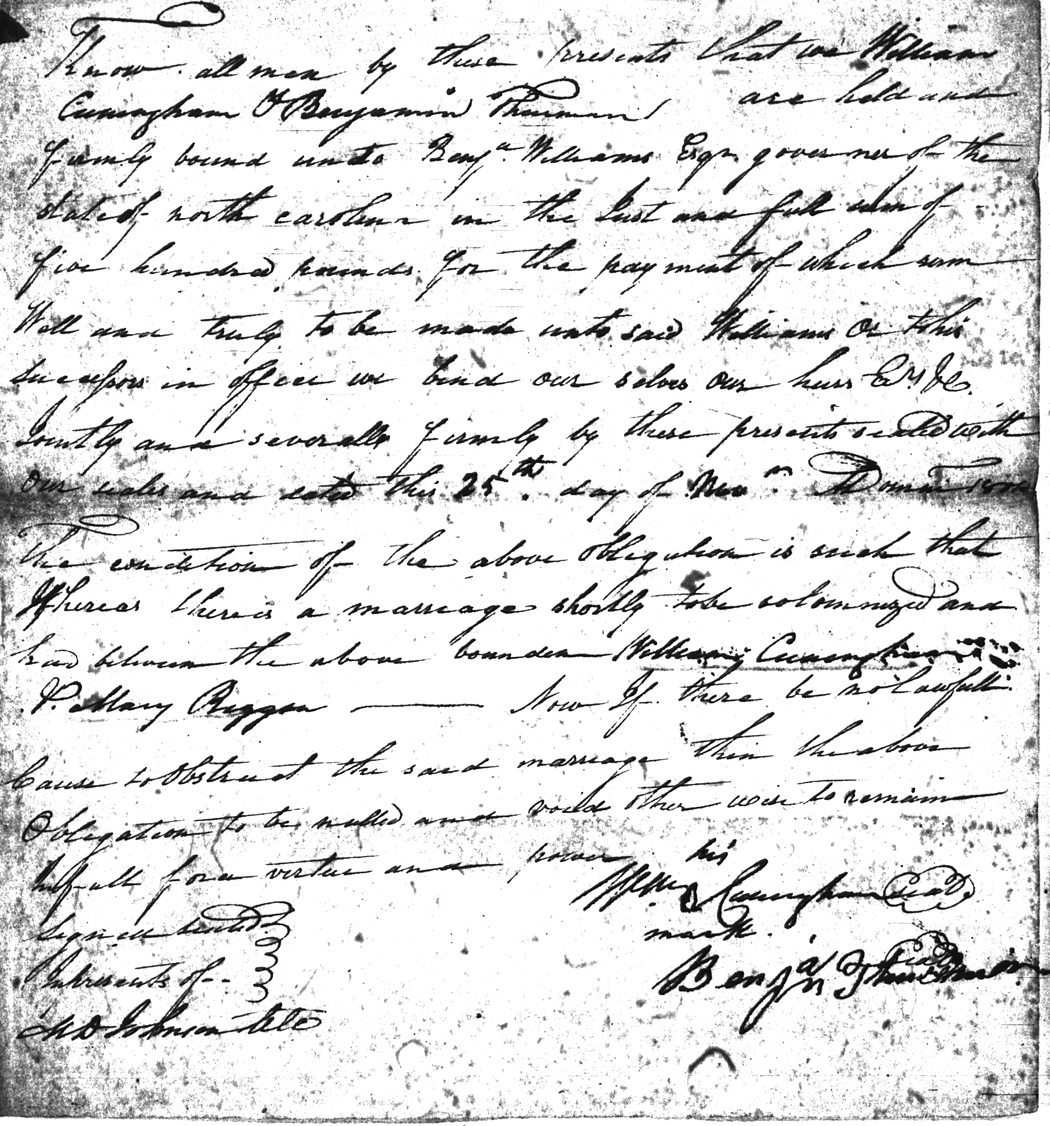 Know all men by these presents that we William
Cuningham & Benjamin Thurman are held and
firmly bound unto Benja. Williams Esqr. governer of the
state of north carolina in the Just and full sum of
five hundred pounds for the payment of which sum
Well and truly to be made unto said Williams Or to his
successors in office we bind our selves our heirs &c.
Jointly and severally firmly by these presents sealed with
our seales and dated this 25th. day of Nov Domini
The condition of the above obligation is such that
Whereas there is a marriage shortly to be solomnized and
had between the above bounden William Cuningham
& Mary Riggan ——— Now If there be no lawfull
Cause to Obstruct the said marriage then the above
Obligation to be nulled and void other wise to remain
In full force virtue and power
his
Wm Cuningham Seal
mark.
Signed sealed
In presents of -
Benja Thurman Seal
M D Johnson